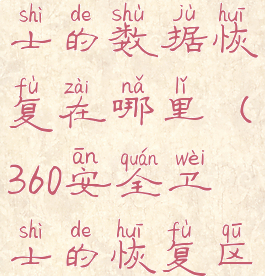 shì de shù jù huī
士的数据恢
fù zài nǎ lǐ
复在哪里（
ān quán wèi
360安全卫
shì de huī fù qū
士的恢复区